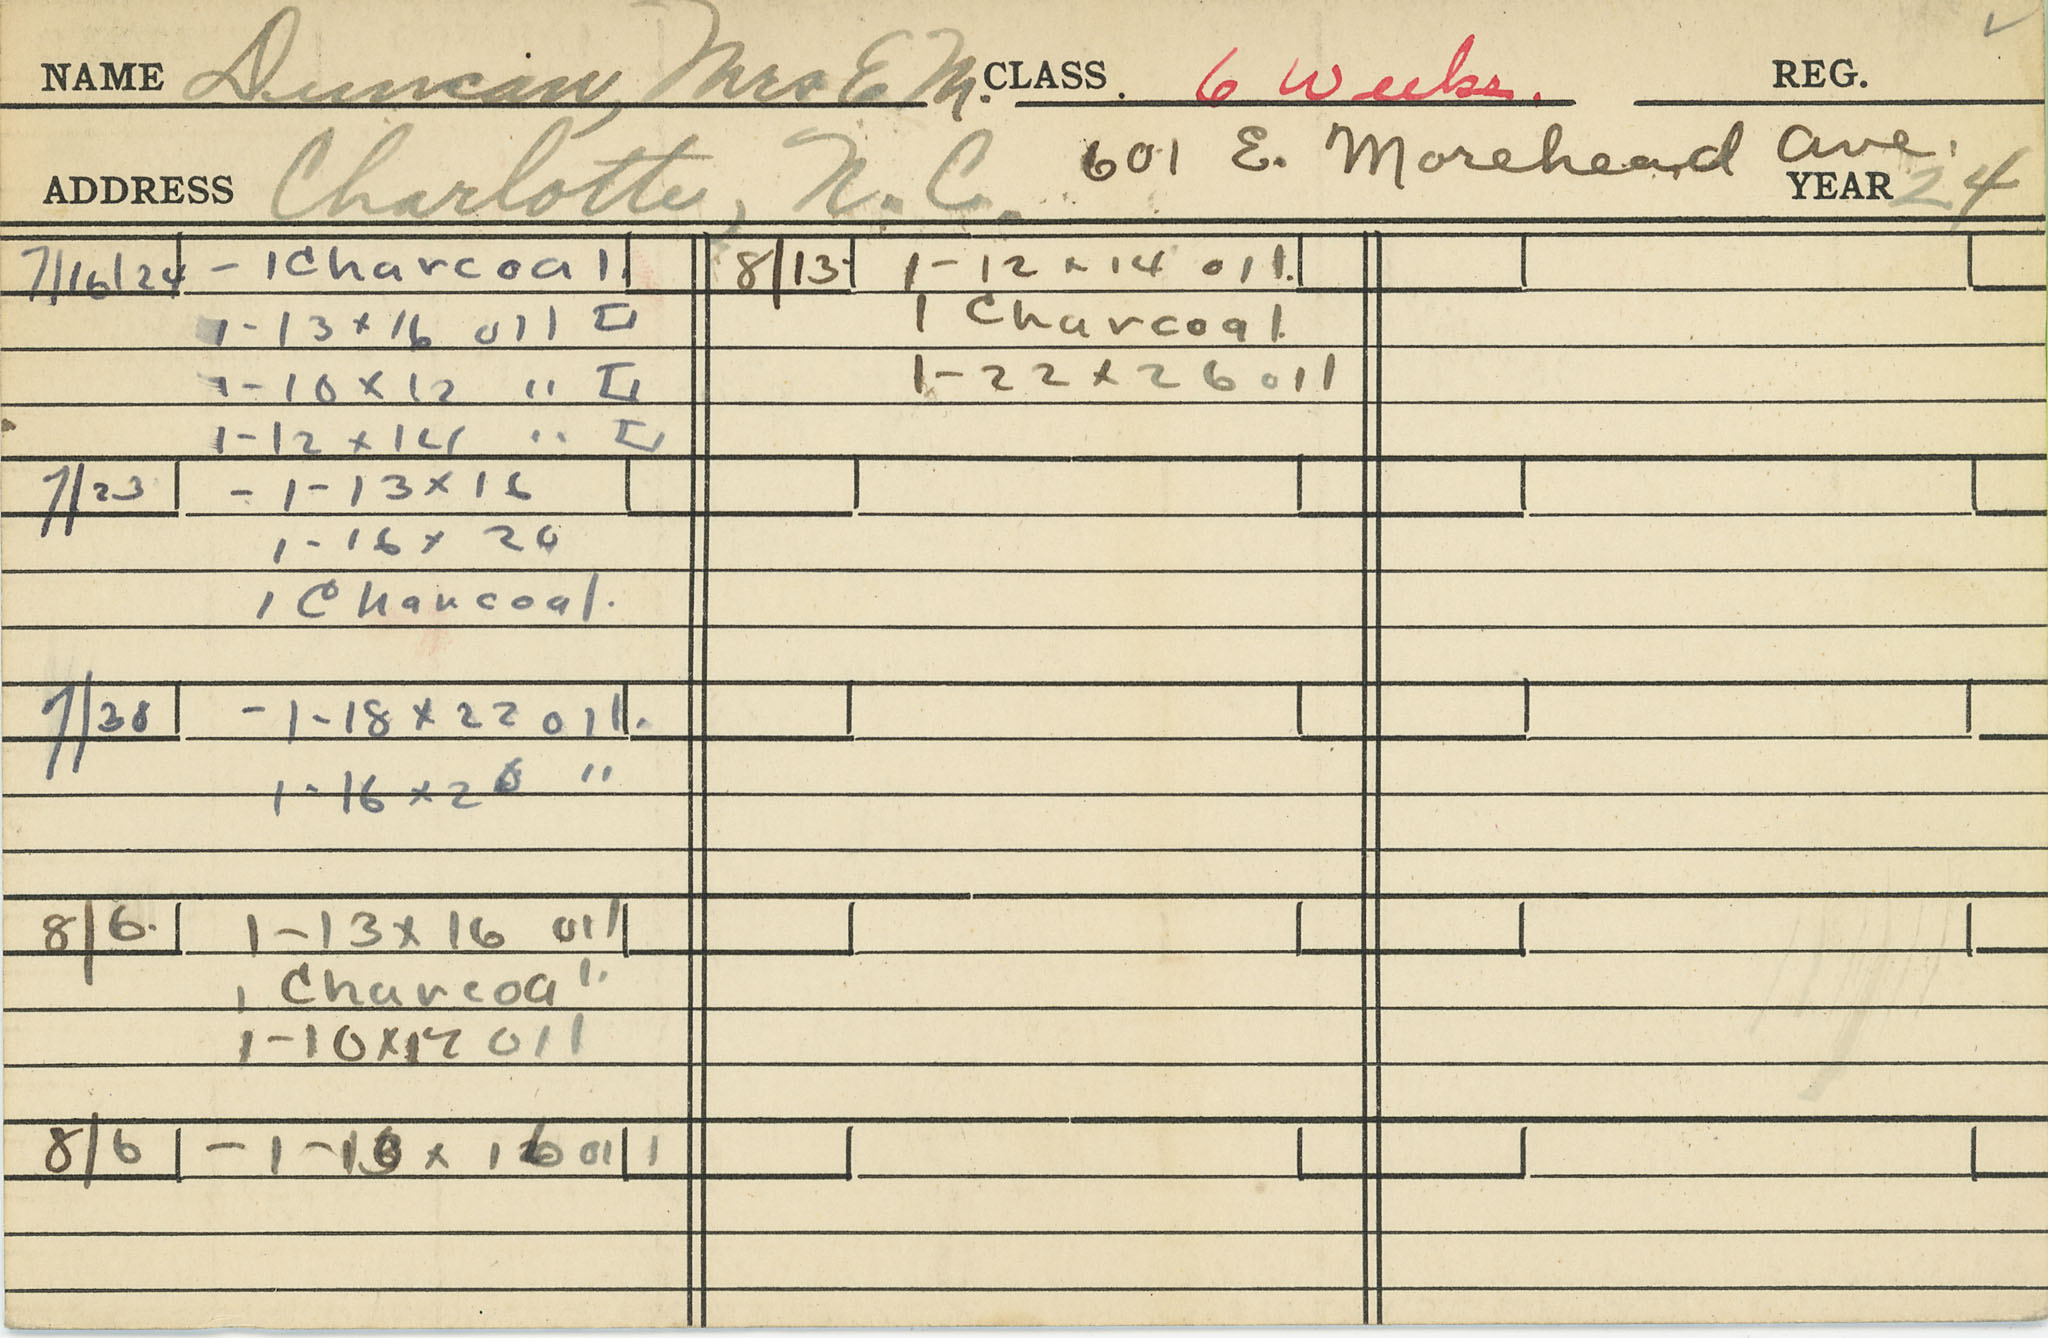 NAME Duncan, Mrs E M. CLASS. 6 Weeks. REG.
ADDRESS Charlotte, N. C. 601 E. Morehead Ave. YEAR 24
7/16/24 - 1 Charcoal.
1-13 x 16 oil
1-10 x 12 "
1-12 x 14 "
7/23 - 1-13 x 16
1-16 x 20
1 Charcoal.
7/30 - 1-18 x 22 oil.
1-16 x 20 "
8/6. 1-13 x 16 oil
1 Charcoal.
1-10 x 12 oil
8/6 - 1- x oil
8/13 1-12 x 14 oil.
1 Charcoal.
1-22 x 26 oil